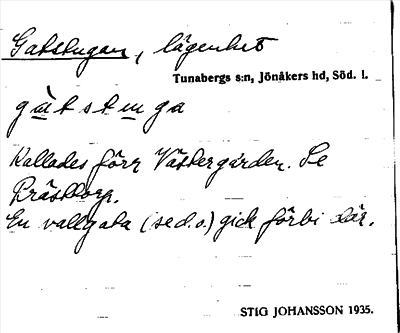 Gatstugan, lägenhet
Tunabergs s:n, Jönåkers hd, Söd. l.
gàtstuga
Kallades förr Västergården. Se
Prästtorp.
En vallgata (se d.o.) gick förbi där.
STIG JOHANSSON 1935.